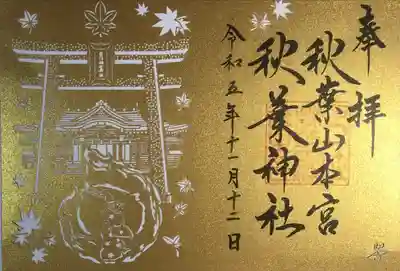 奉拝
秋葉山本宮
秋葉神社
令和五年十一月十二日